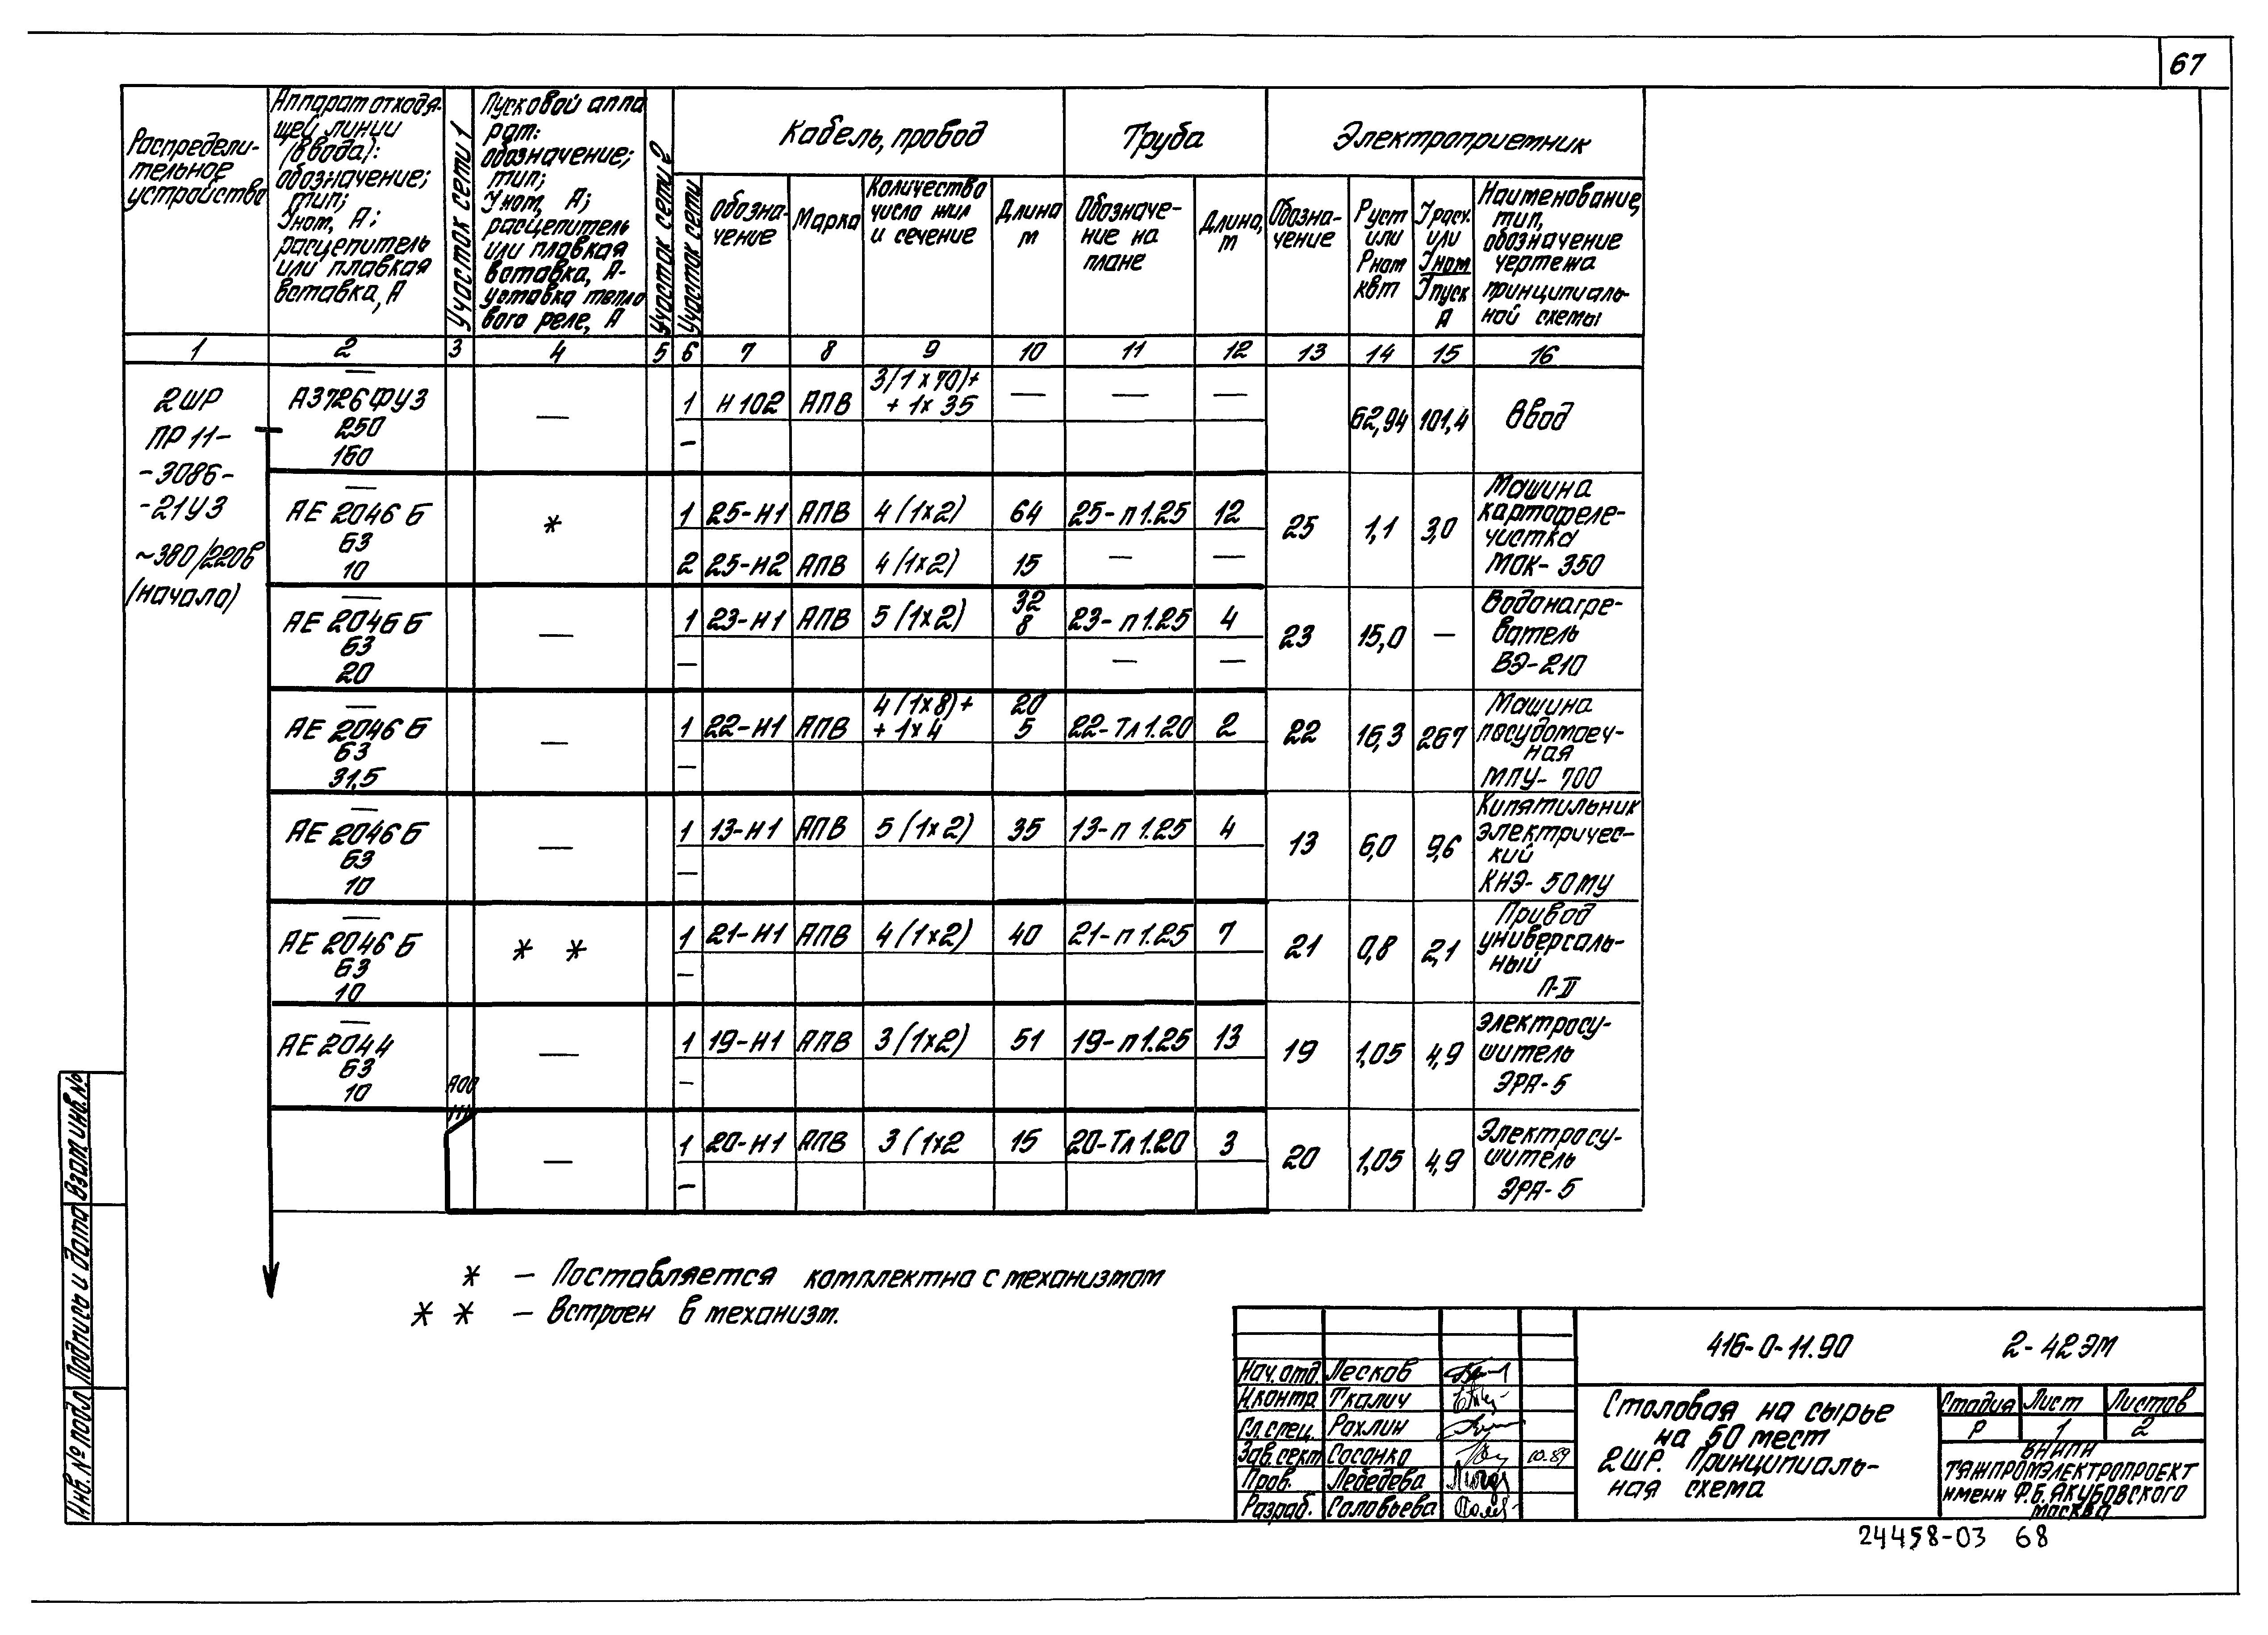 67
Распредели-
тельное
устройство
Аппарат отходя-
щей линии
(ввода):
обозначение;
тип;
Iном, А;
расцепитель
или плавкая
вставка, А
Участок сети 1
Пусковой аппа
рат:
обозначение;
тип;
Iном, А;
расцепитель
или плавкая
вставка, А-
уставка тепло
вого реле, А
Участок сети 2
Кабель, провод
Участок сети
Обозна-
чение
Марка
Количество
число жил
и сечение
Длина
м
Труба
Обозначе-
ние на
плане
Длина,
м
Электроприемник
Обозна-
чение
Руст
или
Рном
кВт
Iрасч.
или
Iном
Iпуск
А
Наименование,
тип,
обозначение
чертежа
принципиаль-
ной схемы
1 2 3 4 5 6 7 8 9 10 11 12 13 14 15 16
2ШР
ПР 11-
-3086-
-21У3
~380/220в
(начало)
—
А3726ФУ3
250
160
—
1 Н102 АПВ 3(1x70)+
+ 1x35
— — —
—
62,94 101,4 Ввод
—
АЕ 2046 Б
63
10
*
1 25-Н1 АПВ 4(1x2) 64 25-п1.25 12
2 25-Н2 АПВ 4(1x2) 15 — —
25 1,1 3,0
Машина
картофеле-
чистка
МОК-350
—
АЕ 2046 Б
63
20
—
1 23-Н1 АПВ 5(1x2) 32
8
23-п1.25 4
— — —
23 15,0 —
Водонагре-
ватель
ВЭ-210
—
АЕ 2046 Б
63
31,5
—
1 22-Н1 АПВ 4(1x8)+
+1x4
20
5
22-Тл1.20 2
—
22 16,3 267
Машина
посудомоеч-
ная
МПУ-700
—
АЕ 2046 Б
63
10
—
1 13-Н1 АПВ 5(1x2) 35 13-п1.25 4
—
13 6,0 9,6
Кипятильник
электричес-
кий
КНЭ-50МУ
—
АЕ 2046 Б
63
10
* *
1 21-Н1 АПВ 4(1x2) 40 21-п1.25 7
—
21 0,8 2,1
Привод
универсаль-
ный
П-II
—
АЕ 2044
63
10
—
1 19-Н1 АПВ 3(1x2) 51 19-п1.25 13
—
19 1,05 4,9
Электросу-
шитель
ЭРА-5
—
1 20-Н1 АПВ 3(1x2 15 20-Тл1.20 3
—
20 1,05 4,9
Электросу-
шитель
ЭРА-5
* — Поставляется комплектно с механизмом
* * — Встроен в механизм.
Взам.инв.№
Подпись и дата
Инв.№ подл
Нач.отд. Лесков
Н.контр. Ткалич
Гл.спец. Рахлин
Зав.сект. Сосонко 10.89
Пров. Лебедева
Разраб. Соловьева
416-0-11.90 2-42ЭМ
Столовая на сырье
на 50 мест
2ШР. Принципиаль-
ная схема
Стадия Лист Листов
Р 1 2
ВНИПИ
ТЯЖПРОМЭЛЕКТРОПРОЕКТ
имени Ф.Б.Якубовского
Москва
24458-03 68